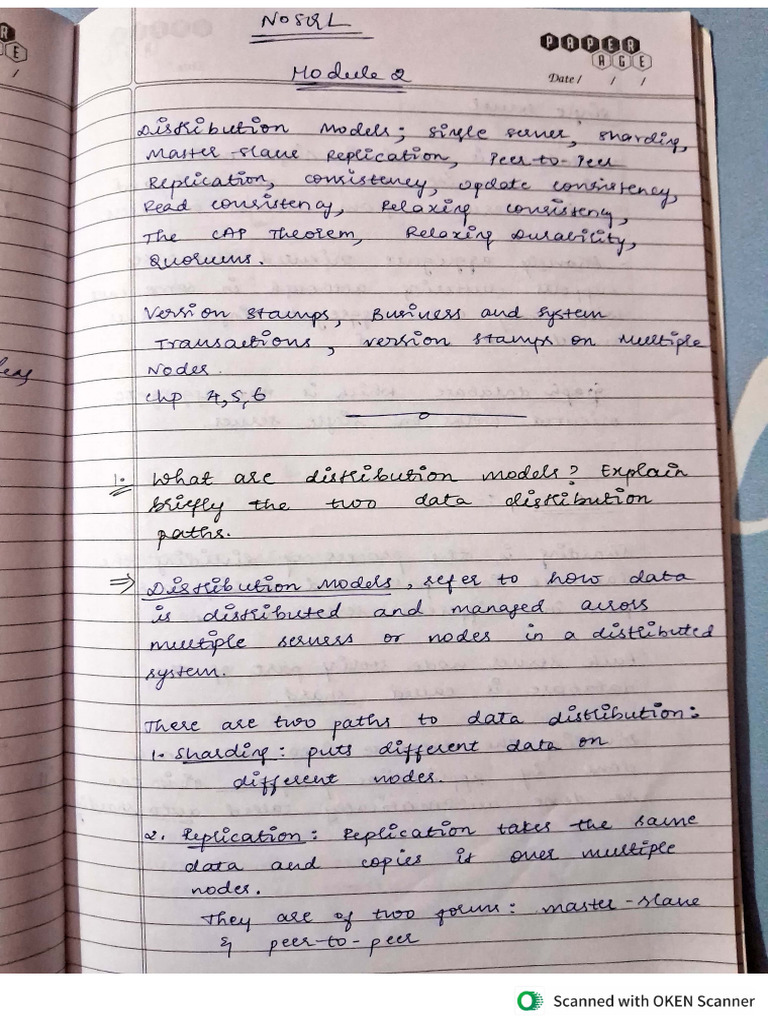 NOSQL
PAPER
AGE
Date / / /
Module 2
Distribution Models; Single server, sharding,
Master-Slave Replication, Peer-to-Peer
Replication, consistency, update consistency,
Read consistency, Relaxing consistency,
The CAP Theorem, Relaxing Durability,
Quorums.
Version Stamps, Business and System
Transactions, Version stamps on Multiple
Nodes.
Chp 4,5,6
1. What are distribution models? Explain
briefly the two data distribution
paths.
⇒ Distribution Models, refer to how data
is distributed and managed across
multiple servers or nodes in a distributed
system.
There are two paths to data distribution:
1. Sharding: puts different data on
different nodes.
2. Replication: Replication takes the same
data and copies it over multiple
nodes.
They are of two forms: master-slave
& peer-to-peer
Scanned with OKEN Scanner